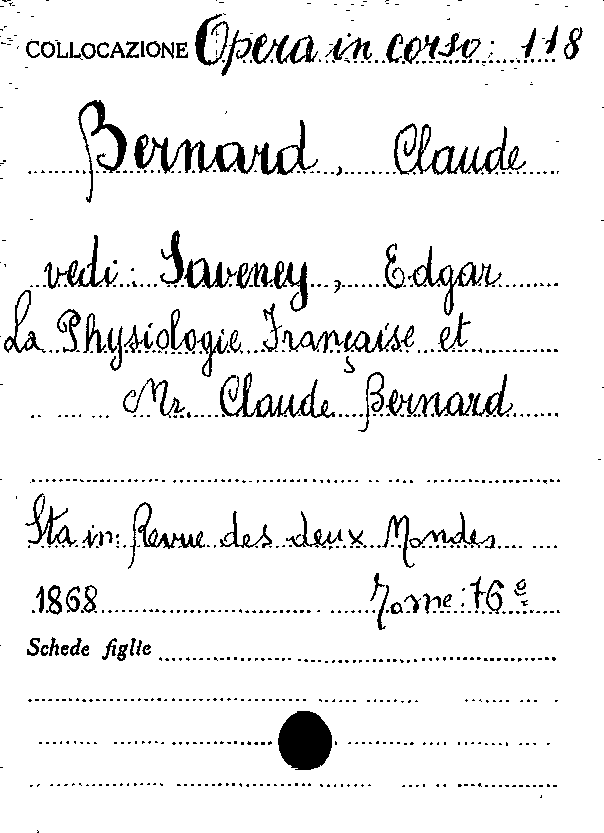 COLLOCAZIONE Opera in corso: 118
Bernard, Claude
vedi: Saveney, Edgar
La Physiologie Française et
Mr. Claude Bernard
Sta in: Revue des deux Mondes
1868 Tome: 76e
Schede figlie